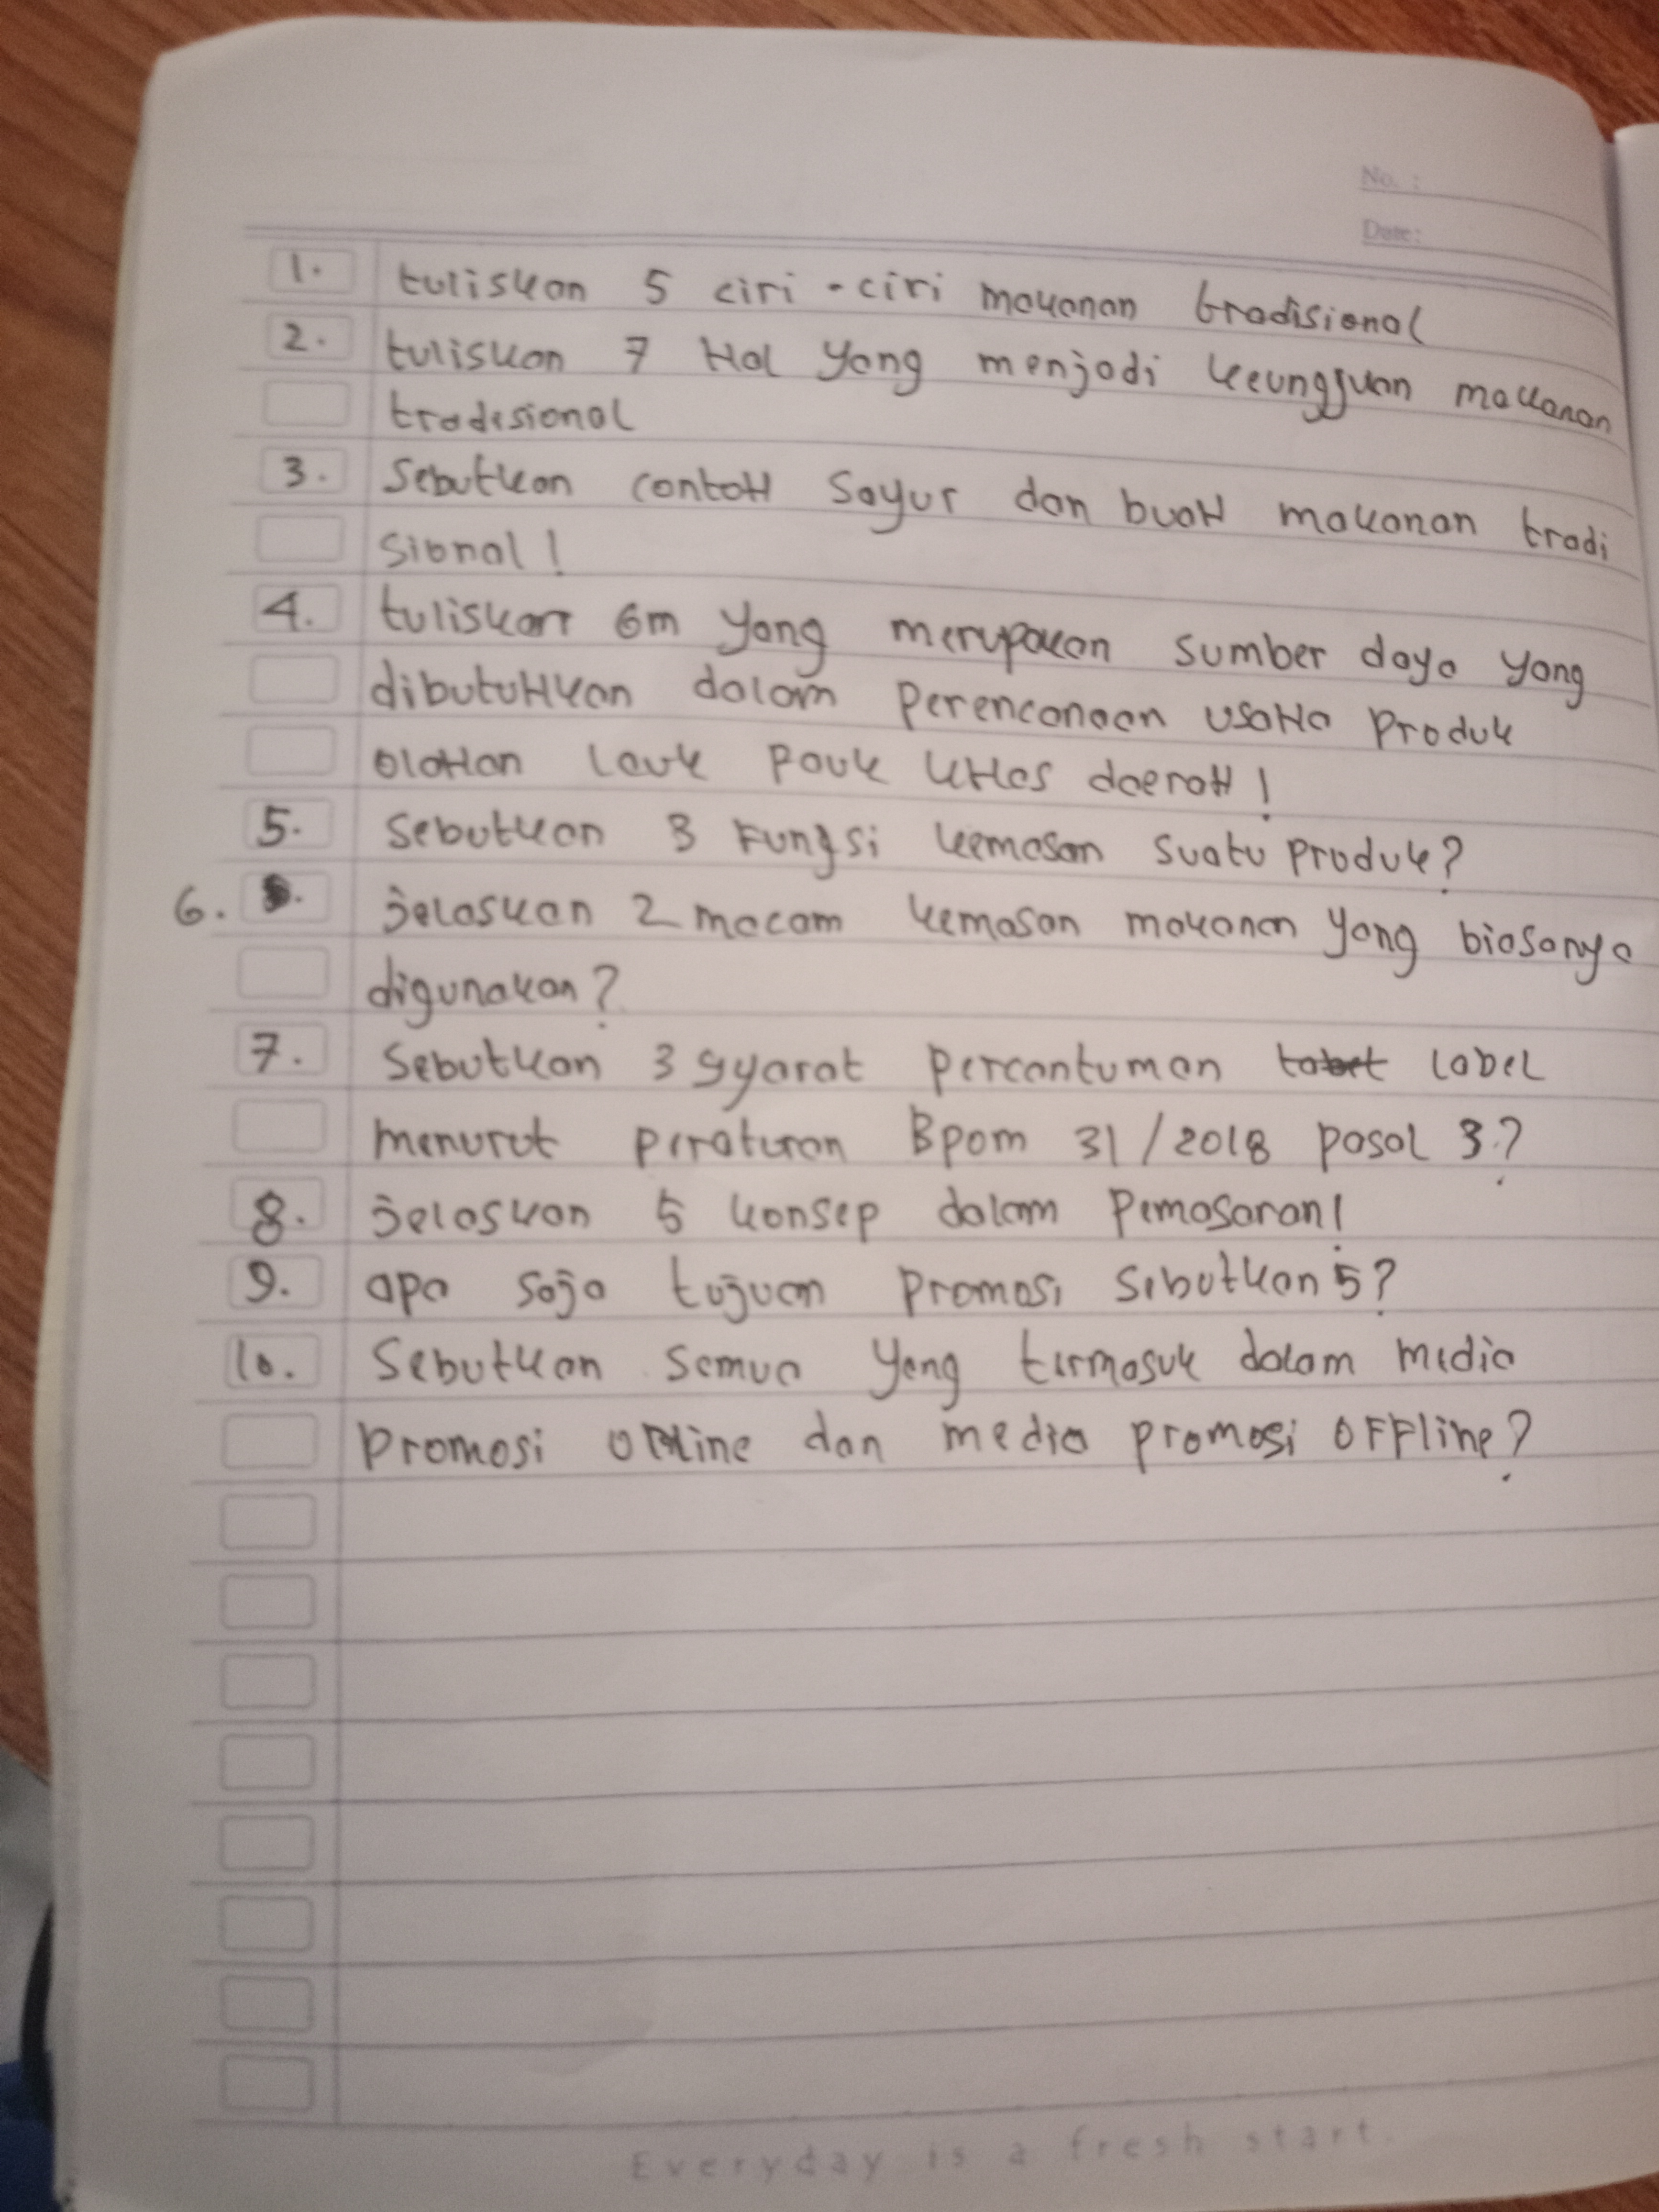 No. :
Date:
1. tuliskan 5 ciri - ciri makanan tradisional
2. tuliskan 7 Hal yang menjadi keungguan makanan
tradisional
3. Sebutkan contoH Sayur dan buaH makanan tradi
sional !
4. tuliskan 6m yang merupakan sumber daya yang
dibutuHkan dalam Perencanaan usaHa Produk
olaHan lauk Pauk kHas daeraH !
5. Sebutkan 3 Fungsi kemasan suatu produk?
6. jelaskan 2 macam kemasan makanan yang biasanya
digunakan?
7. Sebutkan 3 syarat Percantuman label
menurut peraturan Bpom 31/2018 pasal 3?
8. jelaskan 5 konsep dalam Pemasaran!
9. apa saja tujuan Promosi Sebutkan 5?
10. Sebutkan semua yang termasuk dalam media
promosi online dan media promosi OFFline?
Everyday is a fresh start.